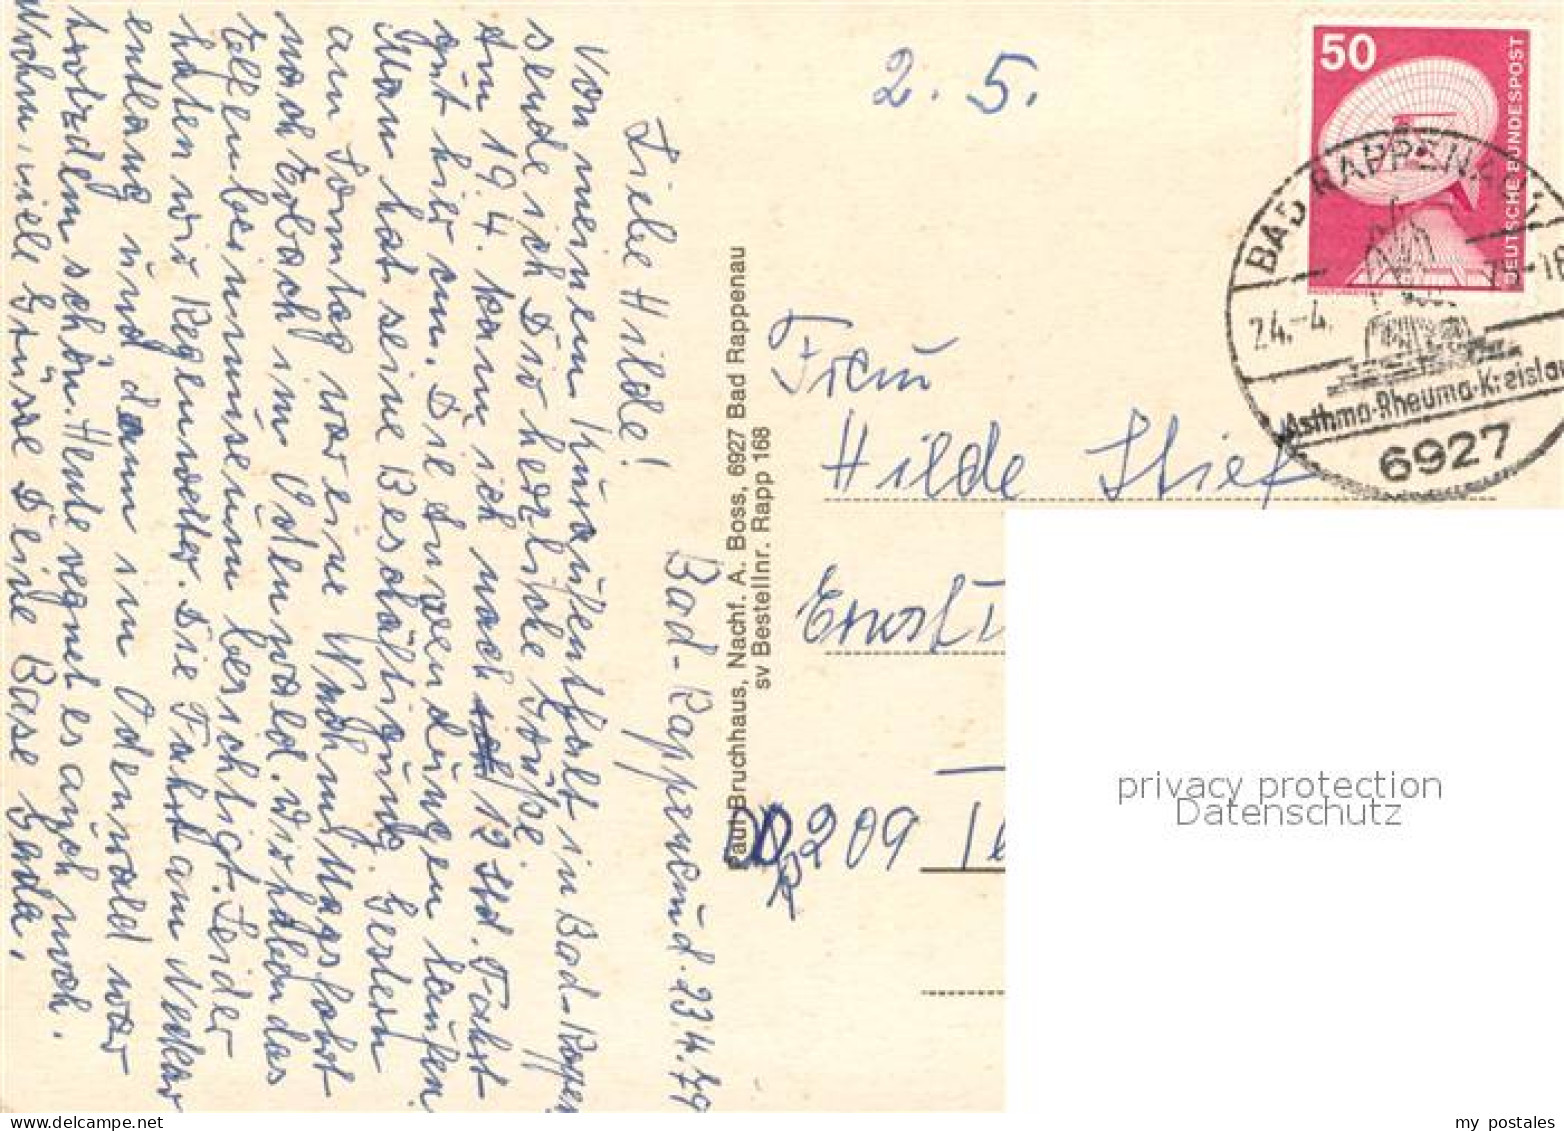 Bad-Rappenau d. 23.4.79
Liebe Hilde!
Von meinem Kuraufenthalt in Bad-Rappen
sende ich Dir herzliche Grüße
Am 19.4. kam ich nach 12 Std. Fahrt
gut hier an. Die Anwendungen laufen
Man hat seine Beschäftigung. Gestern
am Sonntag war eine Nachmittagsfahrt
nach Erbach im Odenwald. Wir haben das
Elfenbeinmuseum besichtigt. Leider
hatten wir Regenwetter. Die Fahrt am Neckar
entlang und dann im Odenwald war
trotzdem schön. Heute regnet es auch noch.
Nochm. viele Grüsse Deine Base Gerda.
Paul Bruchhaus, Nachf. A. Boss, 6927 Bad Rappenau
sv Bestellnr. Rapp 168
2. 5.
50
DEUTSCHE BUNDESPOST
BAD RAPPENAU
24.-4.
Asthma-Rheuma-Kreislau
6927
Frau
Hilde Stief
Ernst
209
privacy protection
Datenschutz
my postales